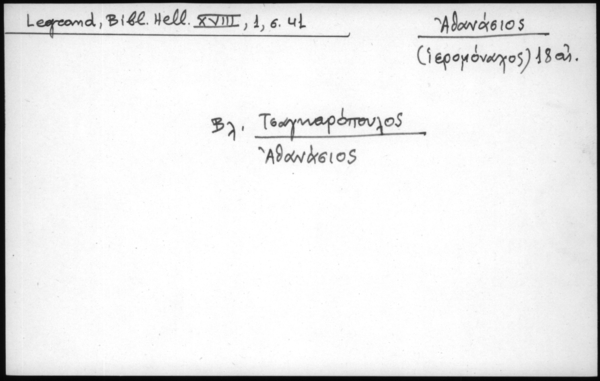 Legrand, Bibl. Hell. XVIII, 1, σ. 41
Ἀθανάσιος
(ἱερομόναχος) 18 αἰ.
Βλ. Τσαγκαρόπουλος
Ἀθανάσιος